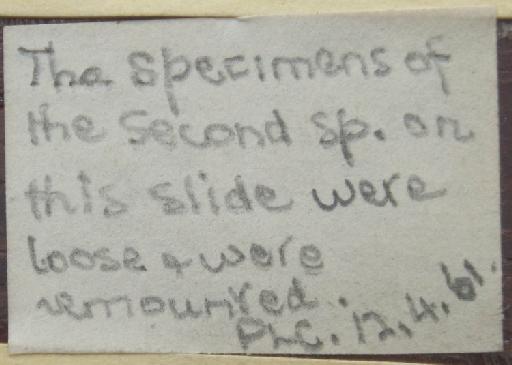 The specimens of
the second sp. on
this slide were
loose & were
remounted.
PLC. 12.4.61.